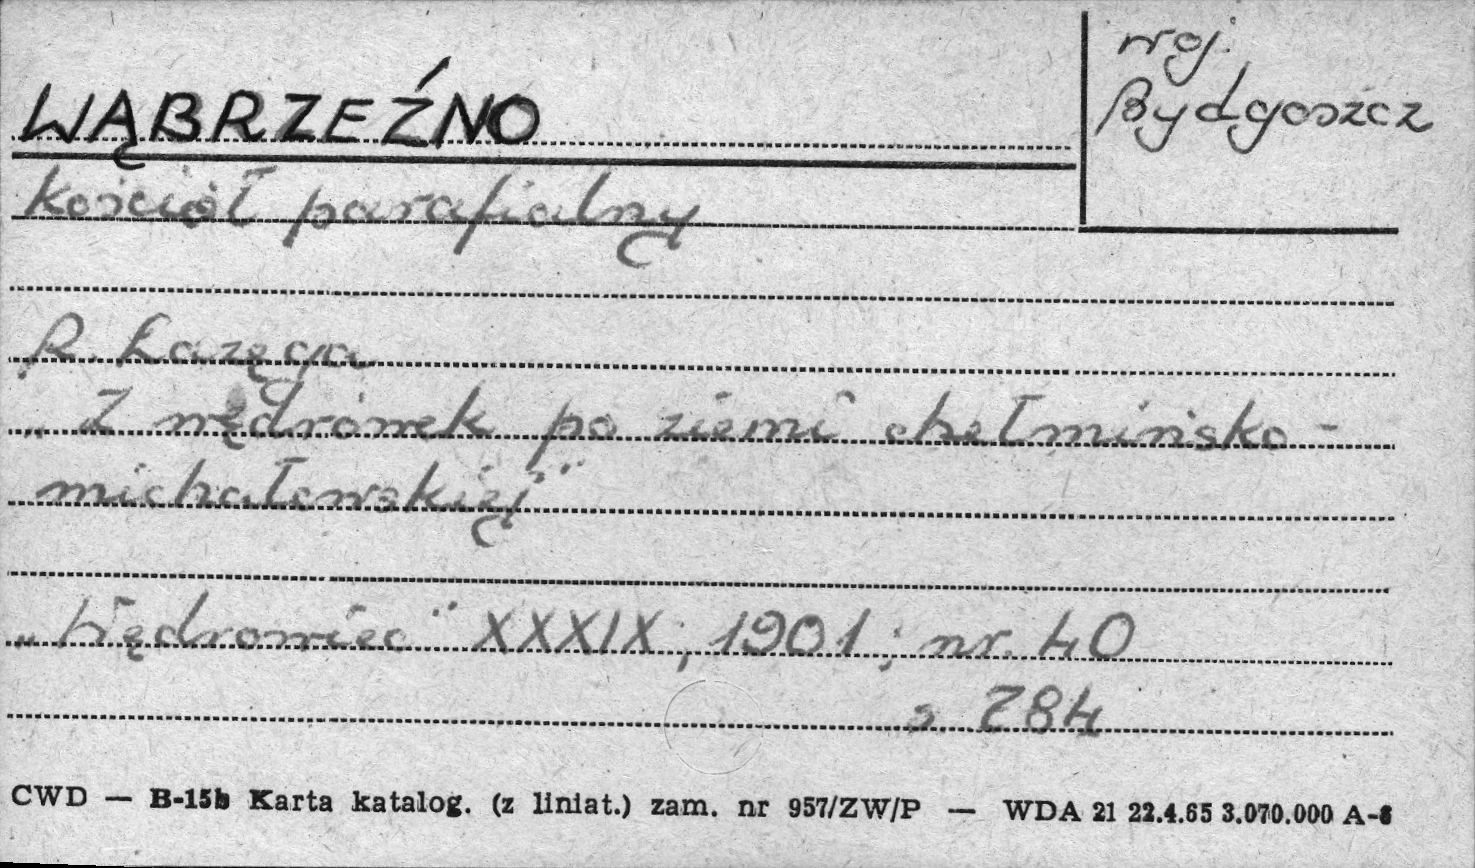 WĄBRZEŹNO
woj.
Bydgoszcz
kościół parafialny
R. Łazęga
„Z wędrówek po ziemi chełmińsko-
michałowskiej"
„Wędrowiec" XXXIX; 1901; nr. 40
s. 784
CWD — B-15b Karta katalog. (z liniat.) zam. nr 957/ZW/P — WDA 21 22.4.65 3.070.000 A-6